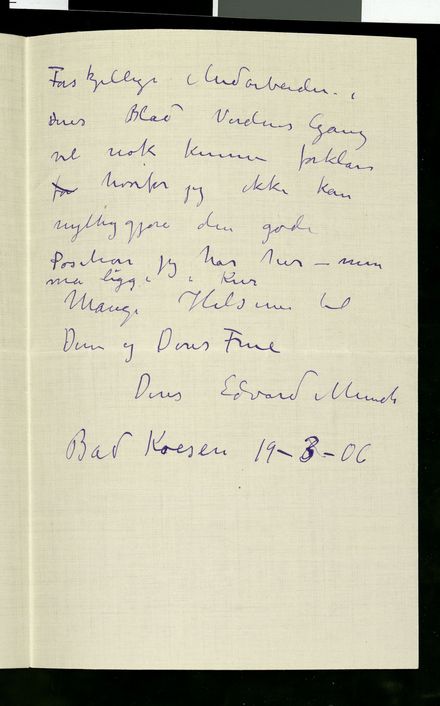 Forskjellige Medarbeider i
Deres Blad Verdens Gang
vil nok kunne forklare
hvorfor jeg ikke kan
nyttiggjøre den gode
Position jeg har her – men
må ligge i Kur
Mange Hilsener til
Dem og Deres Frue
Deres Edvard Munch
Bad Koesen 19–3–06